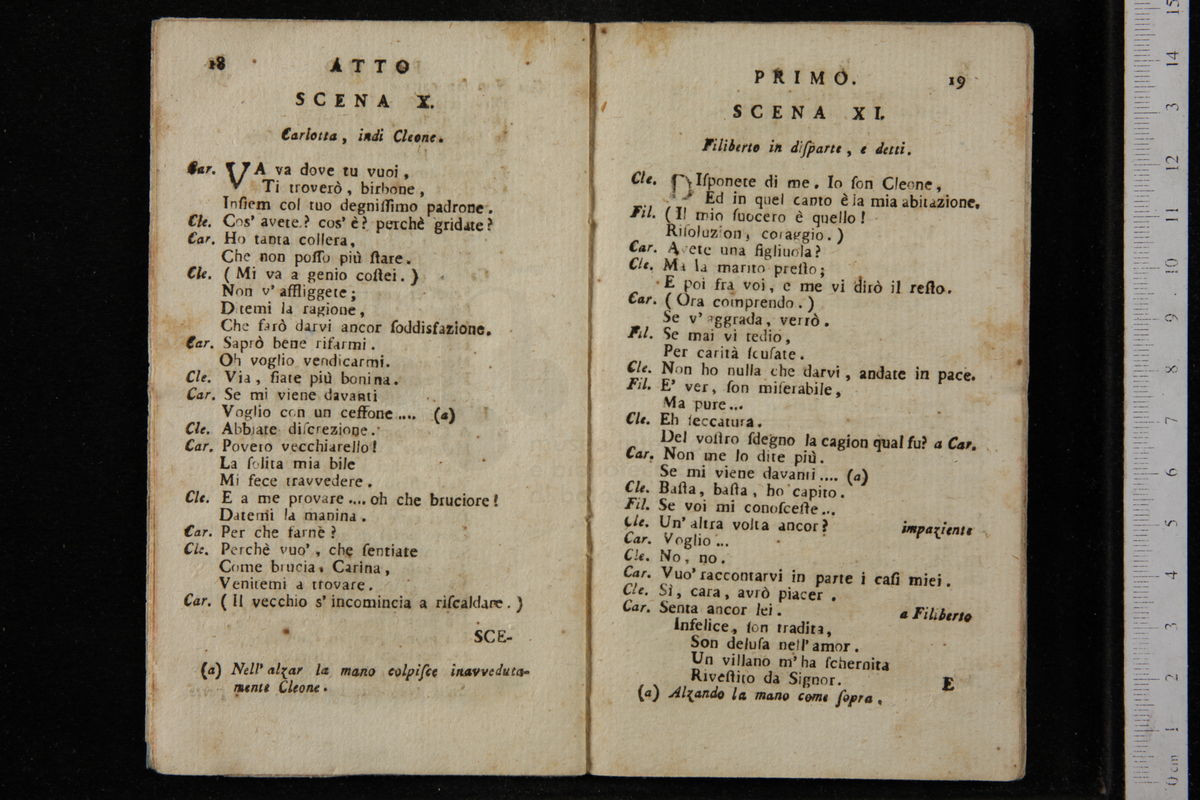 18 ATTO
SCENA X.
Carlotta, indi Cleone.
Car. VA va dove tu vuoi,
Ti troverò, birbone,
Inſiem col tuo degniſſimo padrone.
Cle. Cos' avete? cos' è? perchè gridate?
Car. Ho tanta collera,
Che non poſſo più ſtare.
Cle. (Mi va a genio coſtei.)
Non v' affliggete;
Ditemi la ragione,
Che farò darvi ancor ſoddisfazione.
Car. Saprò bene rifarmi.
Oh voglio vendicarmi.
Cle. Via, ſiate più bonina.
Car. Se mi viene davanti
Voglio con un ceffone .... (a)
Cle. Abbiate diſcrezione.
Car. Povero vecchiarello!
La ſolita mia bile
Mi fece travvedere.
Cle. E a me provare .... oh che bruciore!
Datemi la manina.
Car. Per che farne?
Cle. Perchè vuo', che ſentiate
Come brucia. Carina,
Venitemi a trovare.
Car. (Il vecchio s' incomincia a riſcaldare.)
SCE-
(a) Nell' alzar la mano colpiſce inavveduta-
mente Cleone.
PRIMO. 19
SCENA XI.
Filiberto in diſparte, e detti.
Cle. DIſponete di me. Io ſon Cleone,
Ed in quel canto è la mia abitazione.
Fil. (Il mio ſuocero è quello!
Riſoluzion, coraggio.)
Car. Avete una figliuola?
Cle. Ma la marito preſto;
E poi fra voi, e me vi dirò il reſto.
Car. (Ora comprendo.)
Se v' aggrada, verrò.
Fil. Se mai vi tedio,
Per carità ſcuſate.
Cle. Non ho nulla che darvi, andate in pace.
Fil. E' ver, ſon miſerabile,
Ma pure...
Cle. Eh ſeccatura.
Del voſtro ſdegno la cagion qual fu? a Car.
Car. Non me lo dite più.
Se mi viene davanti .... (a)
Cle. Baſta, baſta, ho capito.
Fil. Se voi mi conoſceſte...
Cle. Un' altra volta ancor? impaziente
Car. Voglio ...
Cle. No, no.
Car. Vuo' raccontarvi in parte i caſi miei.
Cle. Sì, cara, avrò piacer.
Car. Senta ancor lei. a Filiberto
Infelice, ſon tradita,
Son deluſa nell' amor.
Un villano m' ha ſchernita
Riveſtito da Signor.
E
(a) Alzando la mano come ſopra.